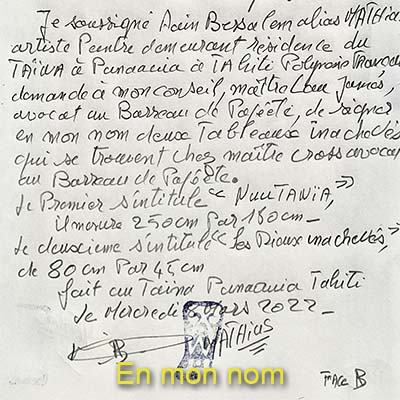 Je soussigné Alain Bessalem alias MATHIUS
artiste Peintre demeurant résidence du
TAÏNA à Punaauia à TAHITI Polynésie
demande à mon conseil, maître Lou James,
avocat au Barreau de Papéété, de signer
en mon nom deux Tableaux inachevés
qui se trouvent chez maître cross avocat
au Barreau de Papéête.
Le Premier s'intitule « NUUTANIA »
il mesure 250cm Par 180cm -
Le deuxieme s'intitule « Les Dieux inachevés »,
de 80 cm Par 45 cm
fait au Taina Punaauia Tahiti
Le Mercredi Mars 2022 -
MATHIUS
En mon nom
FACE B